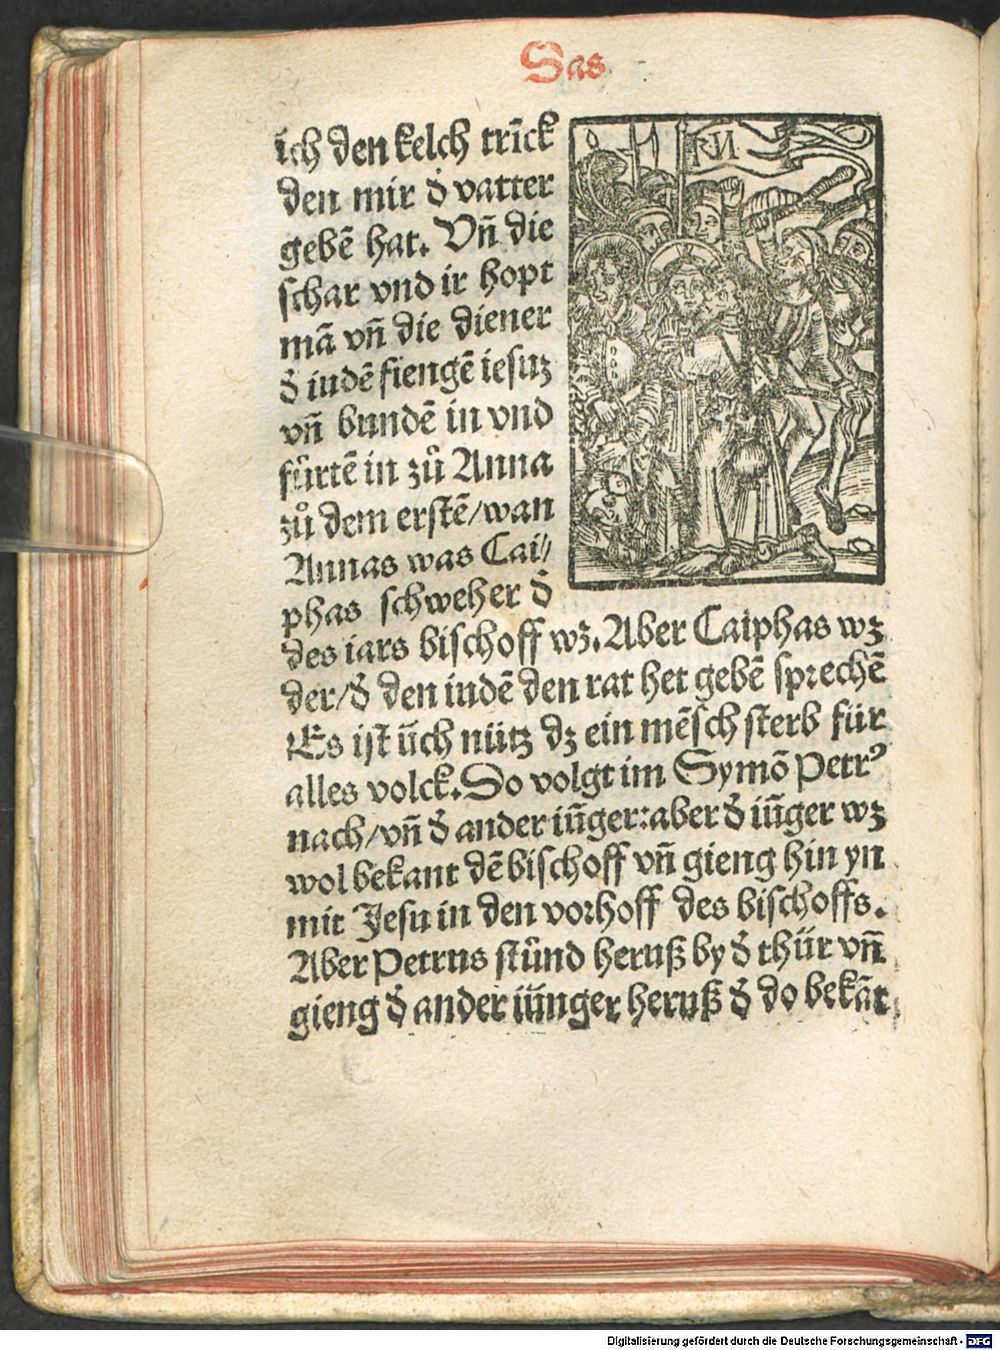 Das
ich den kelch trīck
den mir d̄ vatter
gebē hat. Vn̄ die
schar vnd ir hopt
mā vn̄ die diener
d̄ iudē fiengē iesuz
vn̄ bundē in vnd
fůrtē in zů Anna
zů dem erstē/wan
Annas was Cai//
phas schweher d̄
des iars bischoff wz. Aber Caiphas wz
der/d̄ den iudē den rat het gebē sprechē
Es ist üch nütz dz ein mēsch sterb für
alles volck. So volgt im Symō Petrꝰ
nach/vn̄ d̄ ander iūger: aber d̄ iūger wz
wol bekant dē bischoff vn̄ gieng hin yn
mit Jesu in den vorhoff des bischoffs.
Aber Petrus stůnd heruß by d̄ thür vn̄
gieng d̄ ander iünger heruß d̄ do bekāt
Digitalisierung gefördert durch die Deutsche Forschungsgemeinschaft - DFG